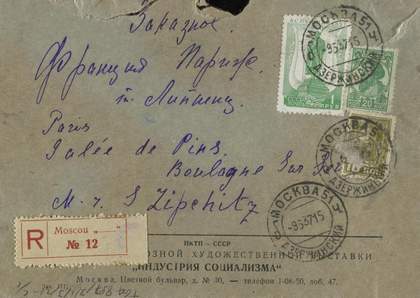 Заказное.
Франция Париж
т. Липшиц
Paris
de Pins,
Boulogne Sur
M-r S Lipchitz
МОСКВА 51
ДЗЕРЖИНСКИЙ
МОСКВА 51
ДЗЕРЖИНСКИЙ
МОСКВА 51
R
Moscou
№ 12
НКТП — СССР
ХУДОЖЕСТВЕННОЙ ВЫСТАВКИ
„ИНДУСТРИЯ СОЦИАЛИЗМА"
Москва, Цветной бульвар, д. № 30, — телефон 1-08-50, доб. 47.